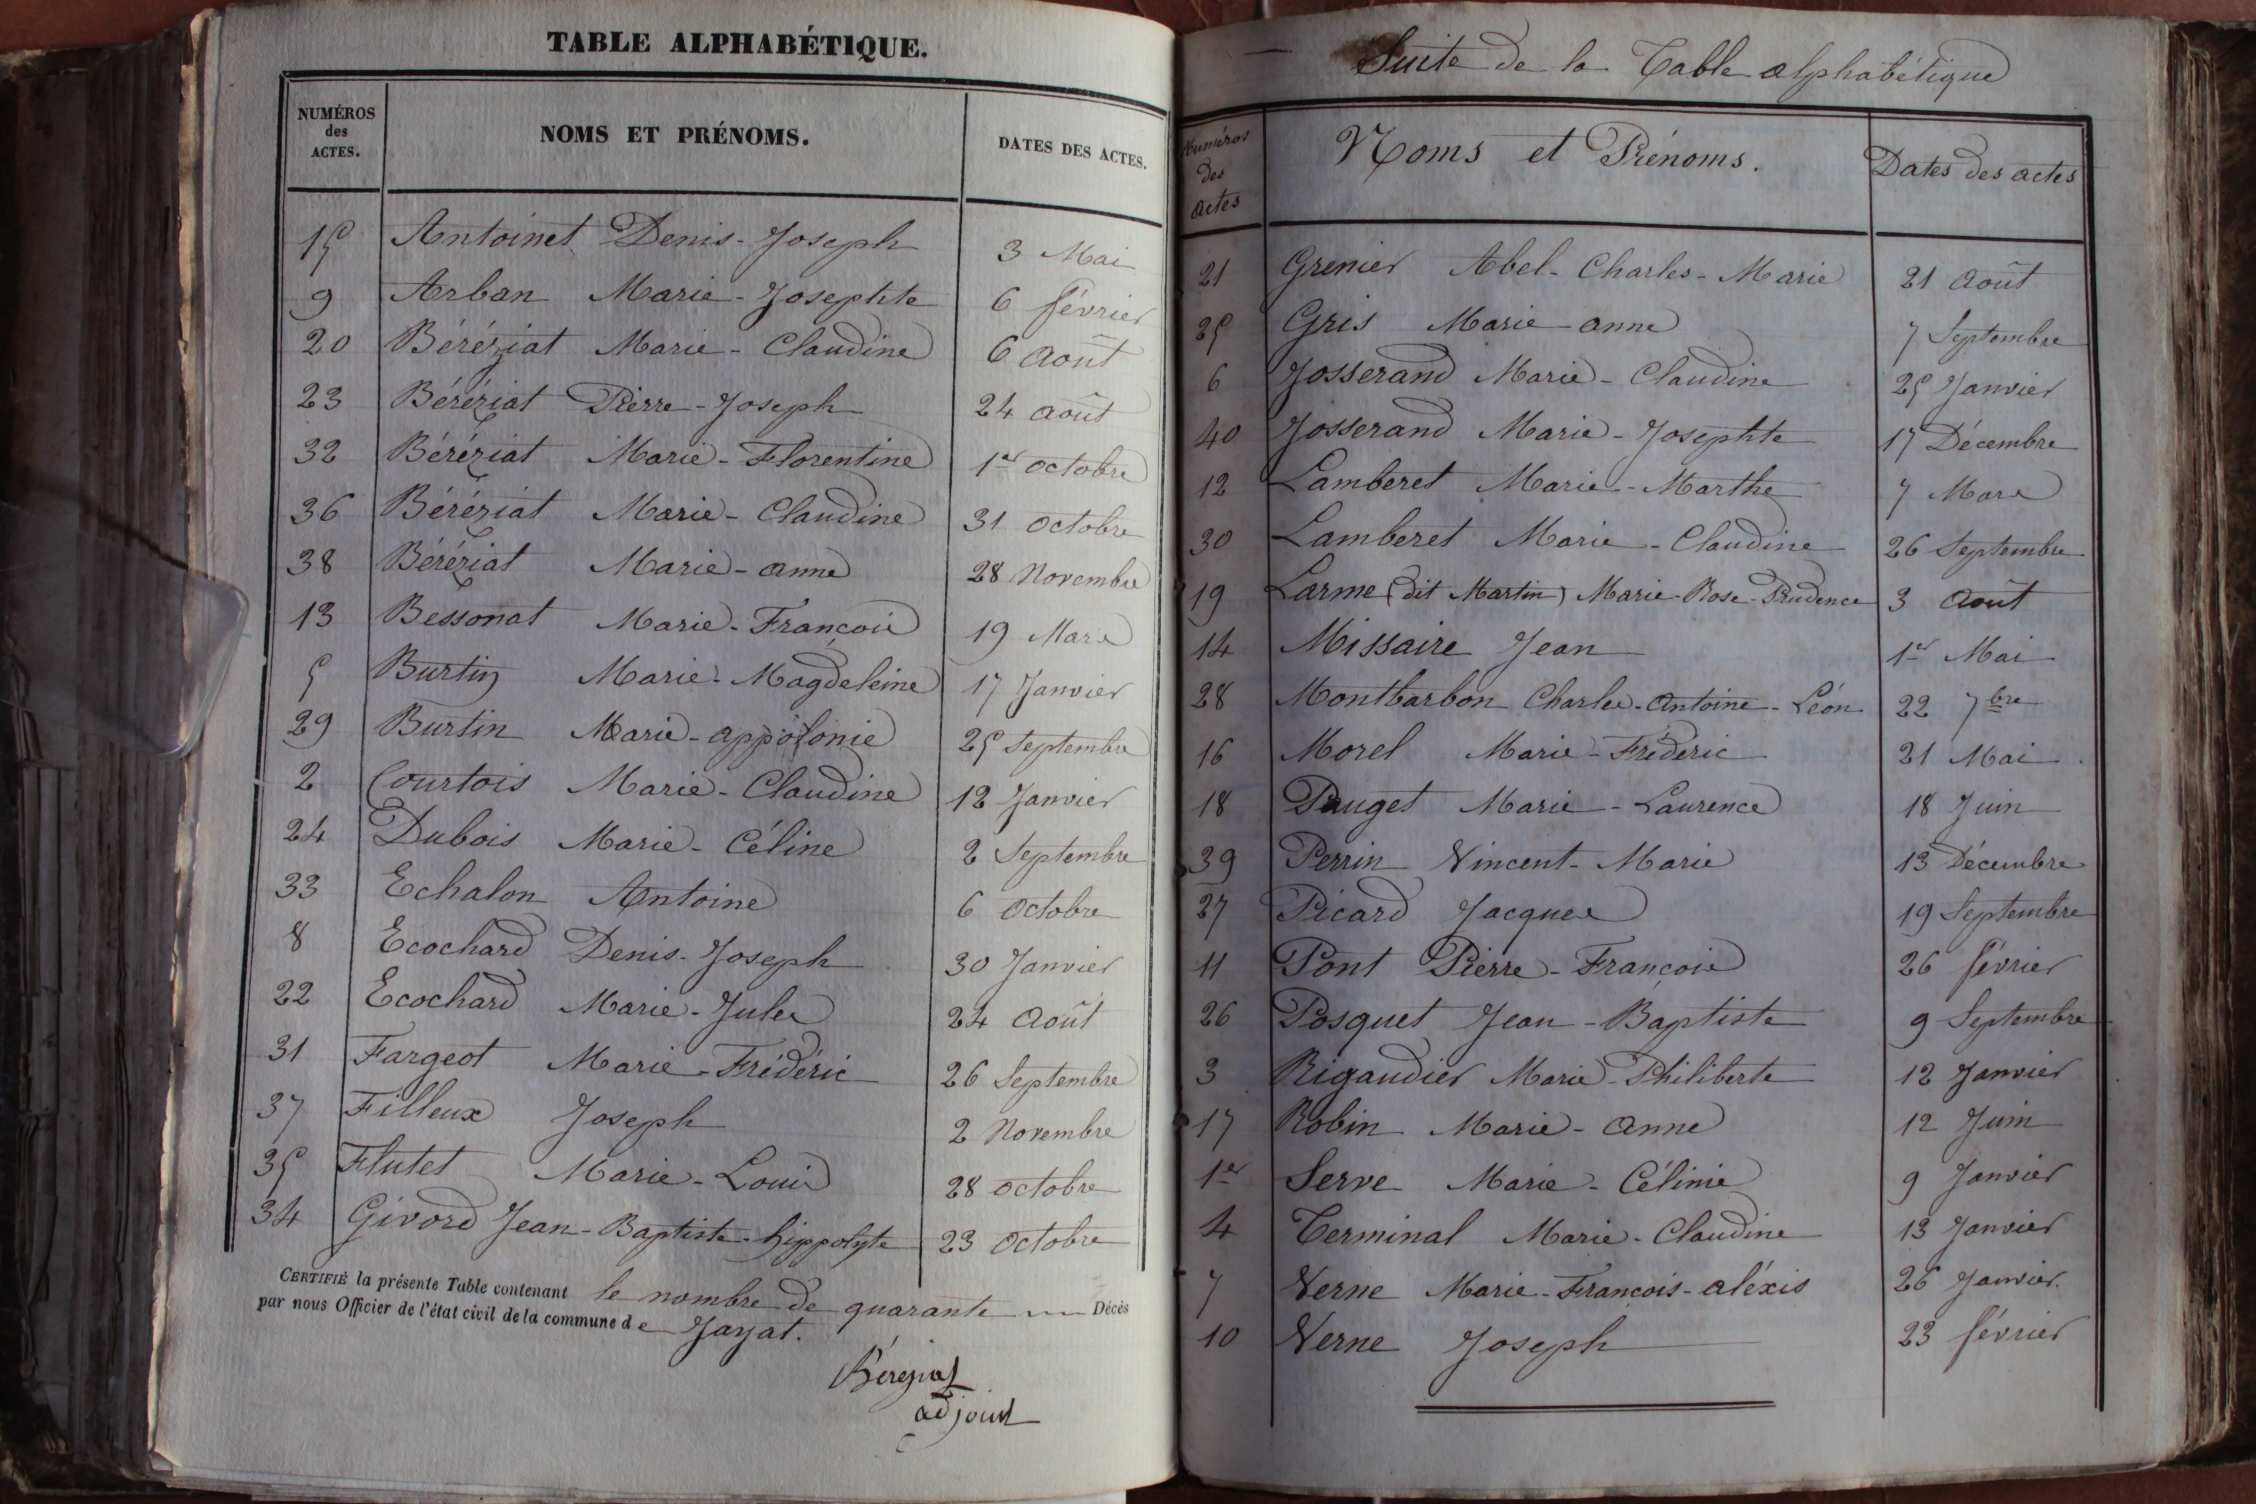 TABLE ALPHABÉTIQUE.
NUMÉROS des ACTES. NOMS ET PRÉNOMS. DATES DES ACTES.
15 Antoinet Denis-Joseph 3 Mai
9 Arban Marie-Josephte 6 février
20 Béréziat Marie-Claudine 6 Août
23 Béréziat Pierre-Joseph 24 août
32 Béréziat Marie-Florentine 1er octobre
36 Béréziat Marie-Claudine 31 octobre
38 Béréziat Marie-anne 28 Novembre
13 Bessonat Marie-François 19 Mars
5 Burtin Marie-Magdeleine 17 Janvier
29 Burtin Marie-appolonie 25 Septembre
2 Courtois Marie-Claudine 12 Janvier
24 Dubois Marie-Céline 2 Septembre
33 Echalon Antoine 6 Octobre
8 Ecochard Denis-Joseph 30 Janvier
22 Ecochard Marie-Jules 24 Août
31 Fargeot Marie-Frédéric 26 Septembre
37 Filleux Joseph 2 Novembre
35 Flutet Marie-Louis 28 octobre
34 Givord Jean-Baptiste-hippolyte 23 octobre
CERTIFIÉ la présente Table contenant le nombre de quarante Décès
par nous Officier de l'état civil de la commune de Jayat.
Béréziat
adjoint
Suite de la Table alphabétique
Numéros des actes Noms et Prénoms. Dates des actes
21 Grenier Abel-Charles-Marie 21 Août
25 Gris Marie-anne 7 Septembre
6 Josserand Marie-Claudine 25 Janvier
40 Josserand Marie-Josephte 17 Décembre
12 Lamberet Marie-Marthe 7 Mars
30 Lamberet Marie-Claudine 26 Septembre
19 Larme (dit Martin) Marie-Rose-Prudence 3 Août
14 Missaire Jean 1er Mai
28 Montbarbon Charles-Antoine-Léon 22 7bre
16 Morel Marie-Fréderic 21 Mai
18 Pauget Marie-Laurence 18 Juin
39 Perrin Vincent-Marie 13 Décembre
27 Picard Jacques 19 Septembre
11 Pont Pierre-François 26 février
26 Posquet Jean-Baptiste 9 Septembre
3 Rigaudier Marie-Philiberte 12 Janvier
17 Robin Marie-Anne 12 Juin
1er Serve Marie-Célinie 9 Janvier
4 Terminal Marie-Claudine 13 Janvier
7 Verne Marie-François-aléxis 26 Janvier.
10 Verne Joseph 23 février